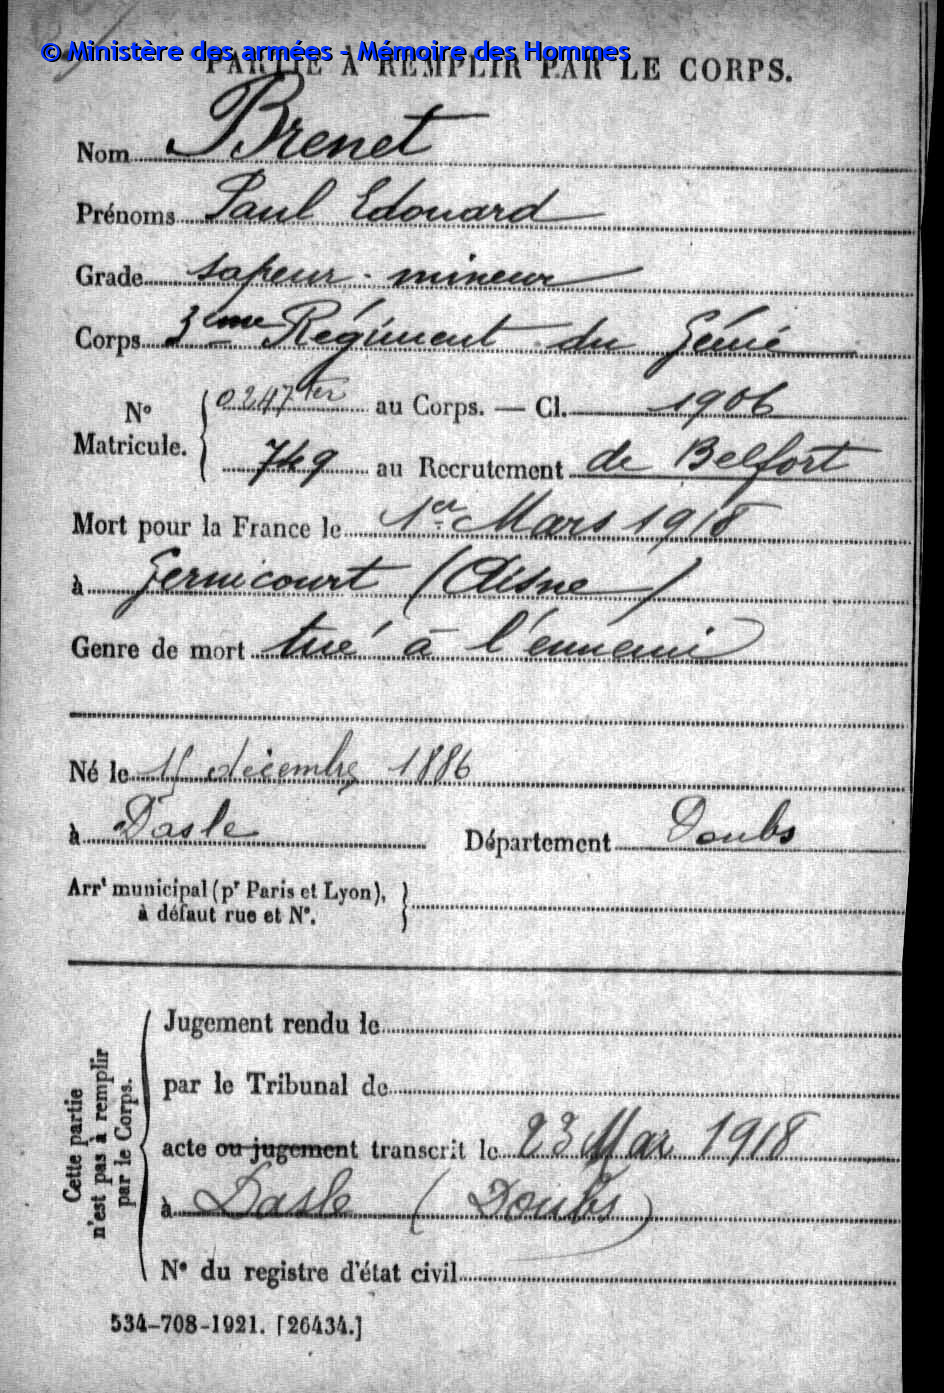 © Ministère des armées - Mémoire des Hommes
PARTIE À REMPLIR PAR LE CORPS.
Nom Brenet
Prénoms Paul Edouard
Grade sapeur-mineur
Corps 3ème Régiment du Génie
N° Matricule. 0247ter au Corps. — Cl. 1906
749 au Recrutement de Belfort
Mort pour la France le 1er Mars 1918
à Gernicourt (Aisne)
Genre de mort tué à l'ennemi
Né le décembre 1886
à Dasle Département Doubs
Arrt municipal (pr Paris et Lyon),
à défaut rue et N°.
Cette partie
n'est pas à remplir
par le Corps.
Jugement rendu le
par le Tribunal de
acte ou jugement transcrit le 23 Mai 1918
à Dasle (Doubs)
N° du registre d'état civil
534-708-1921. [26434.]